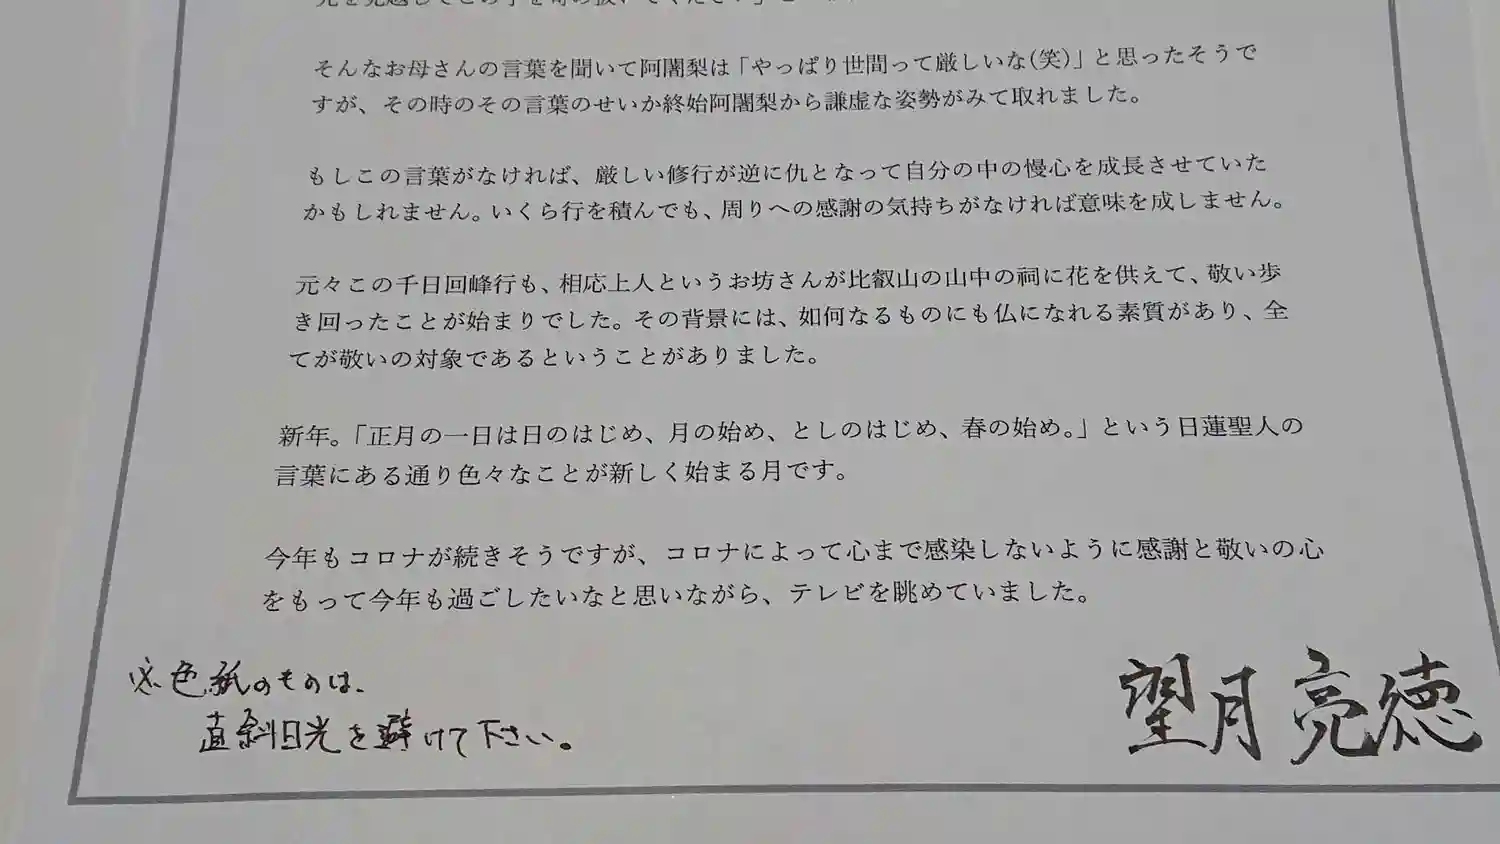 そんなお母さんの言葉を聞いて阿闍梨は「やっぱり世間って厳しいな(笑)」と思ったそうで
すが、その時のその言葉のせいか終始阿闍梨から謙虚な姿勢がみて取れました。
もしこの言葉がなければ、厳しい修行が逆に仇となって自分の中の慢心を成長させていた
かもしれません。いくら行を積んでも、周りへの感謝の気持ちがなければ意味を成しません。
元々この千日回峰行も、相応上人というお坊さんが比叡山の山中の祠に花を供えて、敬い歩
き回ったことが始まりでした。その背景には、如何なるものにも仏になれる素質があり、全
てが敬いの対象であるということがありました。
新年。「正月の一日は日のはじめ、月の始め、としのはじめ、春の始め。」という日蓮聖人の
言葉にある通り色々なことが新しく始まる月です。
今年もコロナが続きそうですが、コロナによって心まで感染しないように感謝と敬いの心
をもって今年も過ごしたいなと思いながら、テレビを眺めていました。
※色紙のものは、
直斜日光を避けて下さい。
望月亮徳